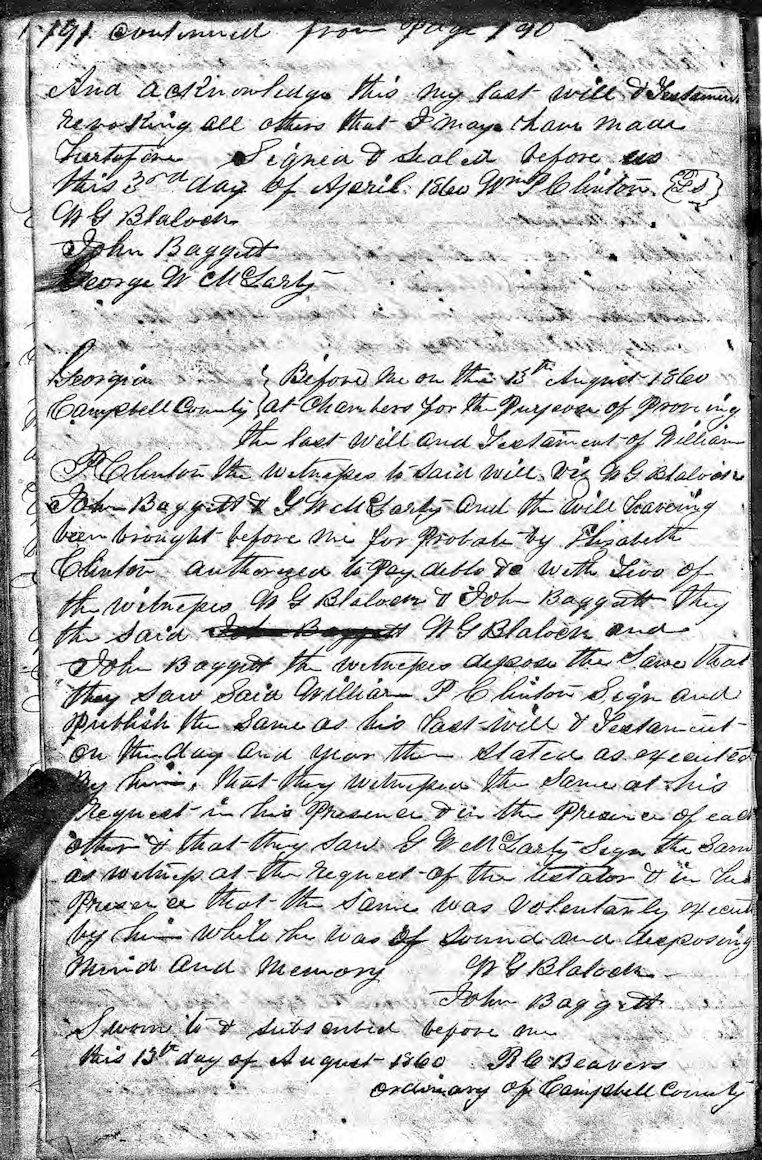 191 continued from Page 190
And acknowledge this my last will & Testament
revoking all others that I may have made
heretofore Signed & Sealed before us
this 3rd day of April 1860 Wm P Clinton {LS}
W G Blalock
John Baggett
George W McLarty
Georgia } Before me on the 13th August 1860
Campbell County } at Chambers for the Purpose of Proving
the last will and Testament of William
P Clinton the witnesses to Said will. viz W G Blalock
John Baggett & G W McLarty and the will haveing
been brought before me for Probate by Elizabeth
Clinton authorized to Pay debts &c with Two of
the witnesses W G Blalock & John Baggett they
the said John Baggett W G Blalock and
John Baggett the witnesses depose the Same that
they saw Said William P Clinton Sign and
Publish the Same as his Last will & Testament
on the day and year then stated as executed
By him, that they witnessed the same at his
Request in his Presence & in the Presence of each
other & that they saw G W McLarty Sign the Same
as witness at the request of the testator & in his
Presence that the same was voluntarly execut
by him while he was of sound and disposing
mind and memory W G Blalock
John Baggett
Sworn to & subscribed before me
this 13th day of August 1860 R C Beavers
ordinary of Campbell County